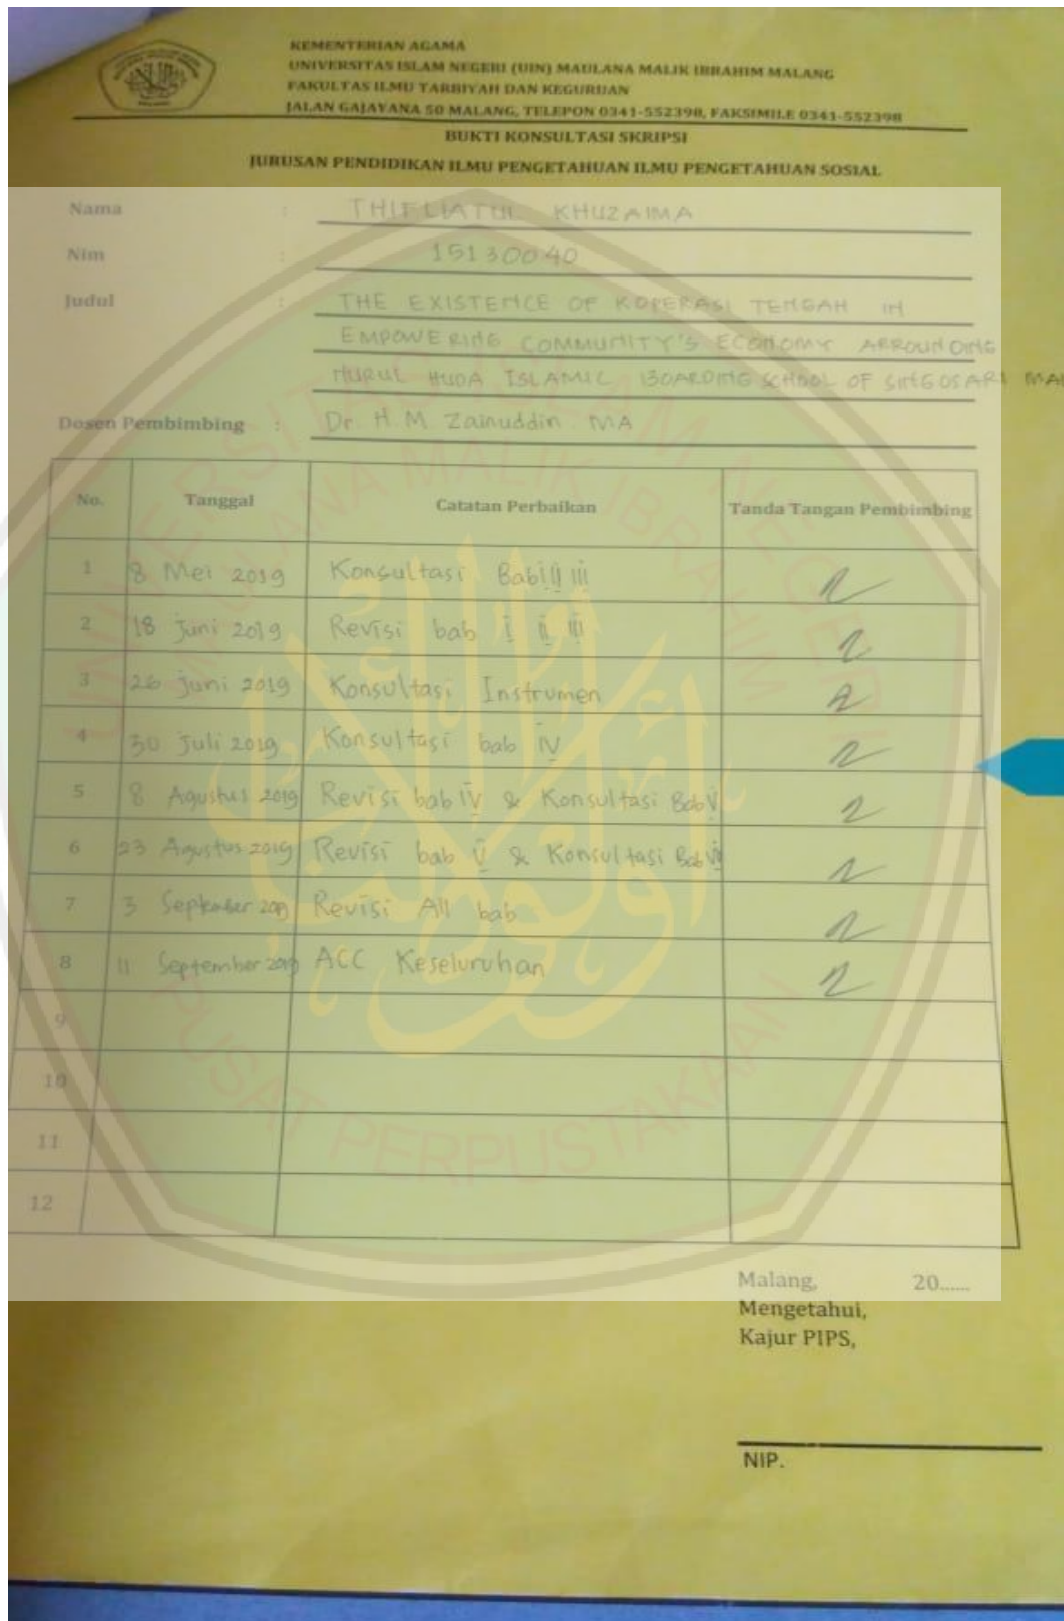 KEMENTERIAN AGAMA
UNIVERSITAS ISLAM NEGERI (UIN) MAULANA MALIK IBRAHIM MALANG
FAKULTAS ILMU TARBIYAH DAN KEGURUAN
JALAN GAJAYANA 50 MALANG, TELEPON 0341-552398, FAKSIMILE 0341-552398
BUKTI KONSULTASI SKRIPSI
JURUSAN PENDIDIKAN ILMU PENGETAHUAN ILMU PENGETAHUAN SOSIAL
Nama : THIFLIATUL KHUZAIMA
Nim : 15130040
Judul : THE EXISTENCE OF KOPERASI TENGAH IN
EMPOWERING COMMUNITY'S ECONOMY ARROUNDING
NURUL HUDA ISLAMIC BOARDING SCHOOL OF SINGOSARI MA
Dosen Pembimbing : Dr. H. M. Zainuddin MA
No. Tanggal Catatan Perbaikan Tanda Tangan Pembimbing
1 8 Mei 2019 Konsultasi Bab I II III
2 18 Juni 2019 Revisi bab I II III
3 26 Juni 2019 Konsultasi Instrumen
4 30 Juli 2019 Konsultasi bab IV
5 8 Agustus 2019 Revisi bab IV & Konsultasi Bab V
6 23 Agustus 2019 Revisi bab V & Konsultasi Bab VI
7 3 September 2019 Revisi All bab
8 11 September 2019 ACC Keseluruhan
9
10
11
12
Malang, 20......
Mengetahui,
Kajur PIPS,
NIP.
UNIVERSITAS ISLAM NEGERI
MAULANA MALIK IBRAHIM
PUSAT PERPUSTAKAAN